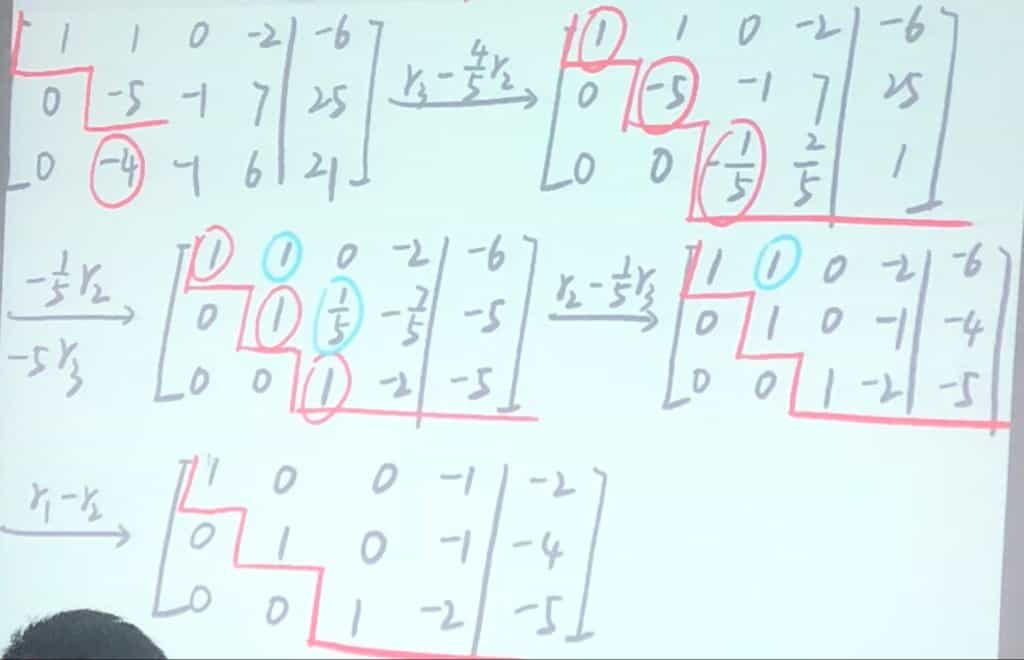 1 1 0 -2 | -6
0 -5 -1 7 | 25
0 -4 -1 6 | 21
r₃ - 4/5 r₂
1 1 0 -2 | -6
0 -5 -1 7 | 25
0 0 -1/5 2/5 | 1
-1/5 r₂
-5r₃
1 1 0 -2 | -6
0 1 1/5 -7/5 | -5
0 0 1 -2 | -5
r₂ - 1/5 r₃
1 1 0 -2 | -6
0 1 0 -1 | -4
0 0 1 -2 | -5
r₁ - r₂
1 0 0 -1 | -2
0 1 0 -1 | -4
0 0 1 -2 | -5